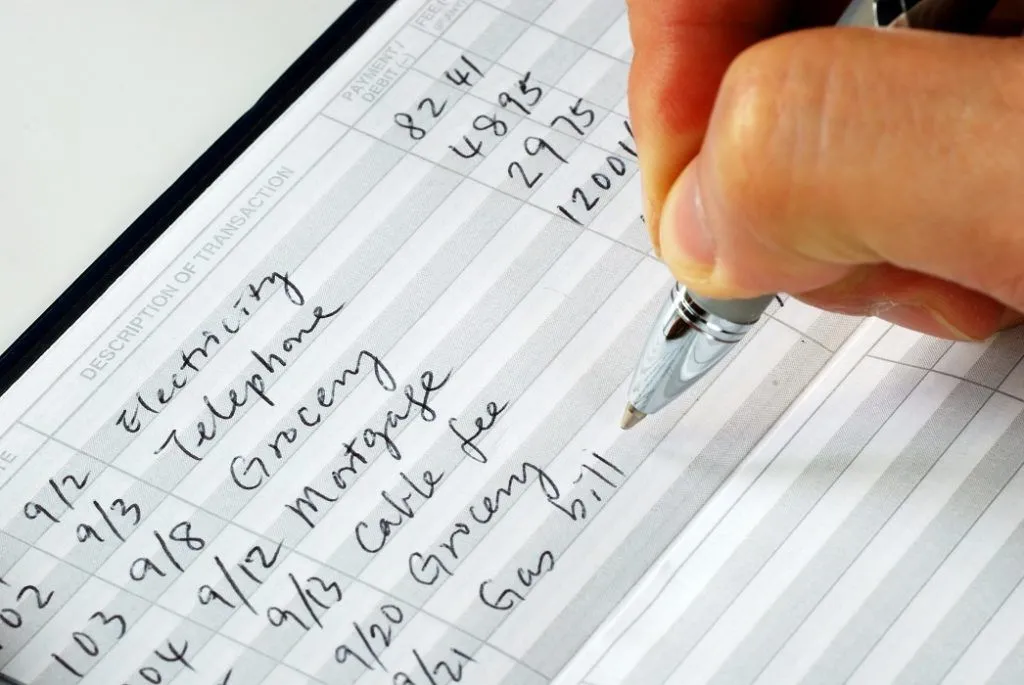 DESCRIPTION OF TRANSACTION PAYMENT / DEBIT (-)
9/2 Electricity 82 41
9/3 Telephone 48 95
02 9/8 Grocery 29 75
103 9/12 Mortgage 1200
04 9/13 Cable fee
9/20 Grocery
9/21 Gas bill